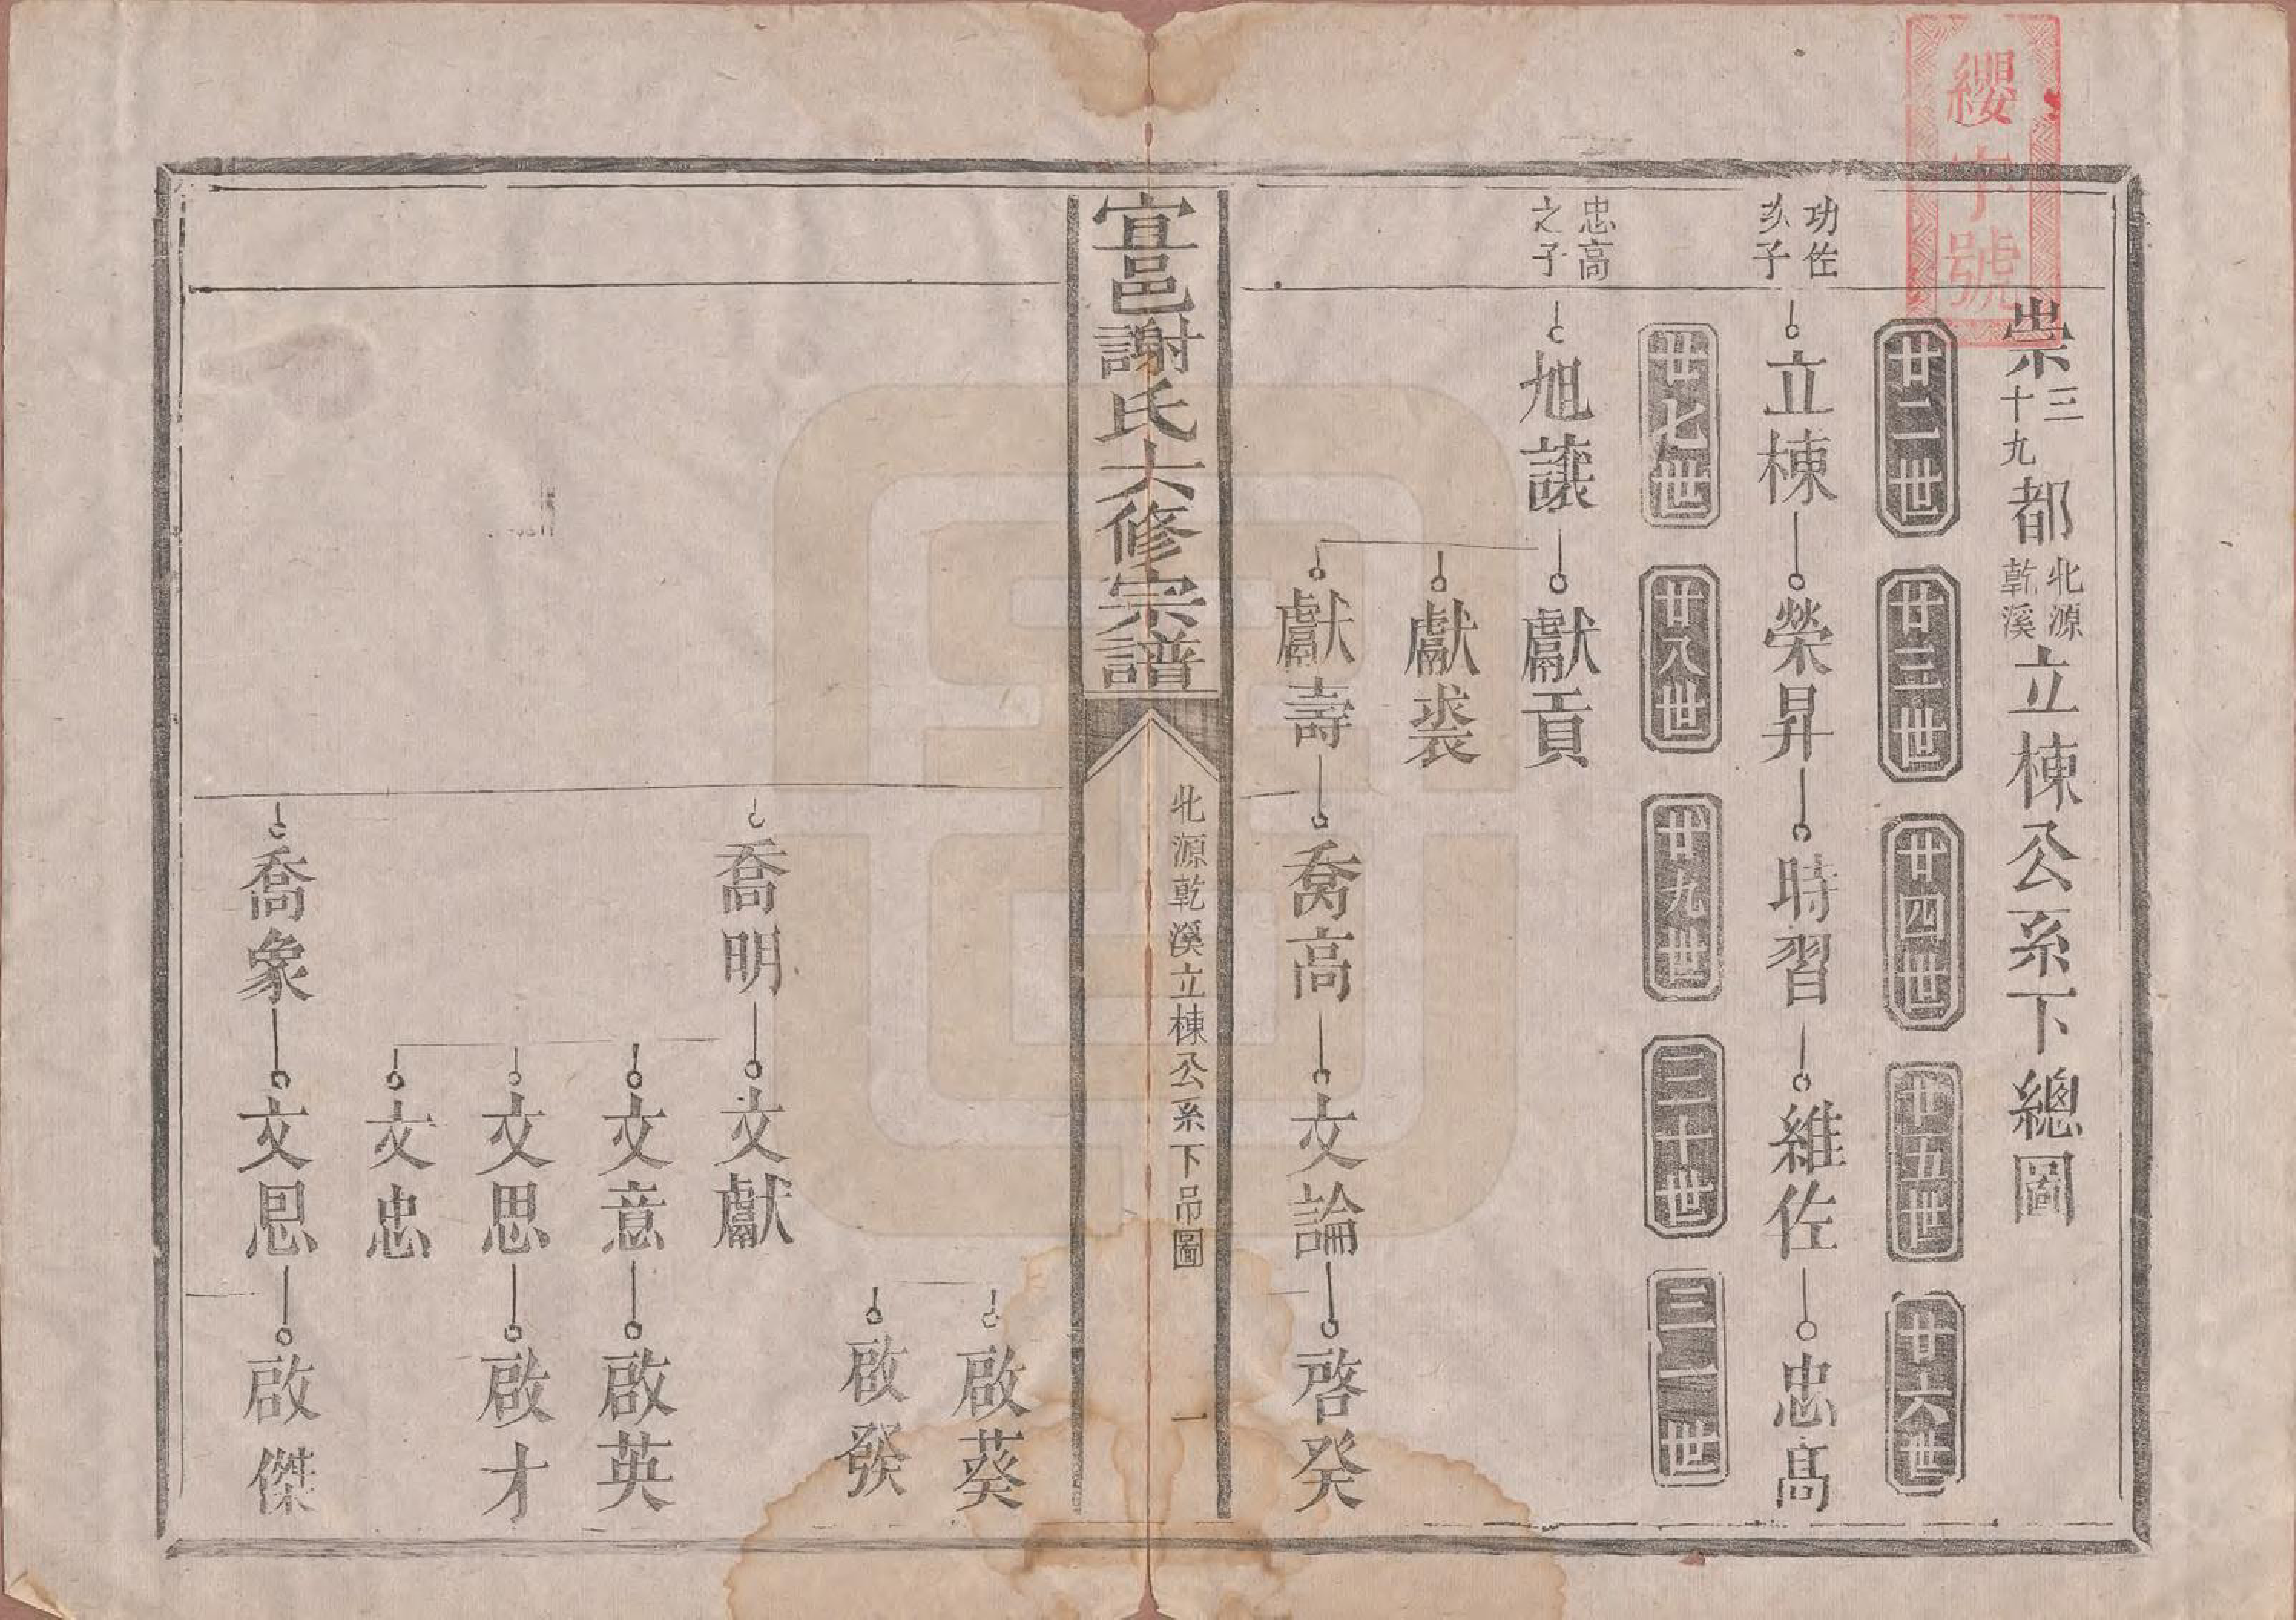 纓字號
崇三十九都北源乾溪立棟公系下總圖
廿二世 廿三世 廿四世 廿五世 廿六世
功佐次子
立棟 榮昇 時習 維佐 忠高
廿七世 廿八世 廿九世 三十世 三一世
忠高之子
旭讓 獻貢
獻裘
獻壽 喬高 文論 啓癸
宜邑謝氏六修宗譜
北源乾溪立棟公系下吊圖 一
啟葵
啟發
喬明 文獻
文意 啟英
文思 啟才
文忠
喬象 文恩 啟傑